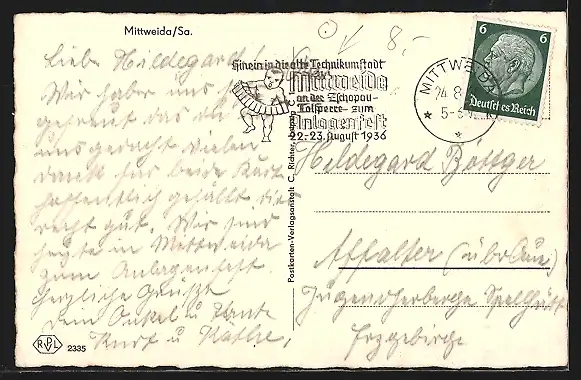 Mittweida/Sa.
Liebe Hildegard!
Wir haber uns
gefreut das du an
uns gedacht vielen
Dank für beide Karten
hoffentlich gefällt dir
recht gut. Wir sind
heute in Mittweida
zum Anlagenfest.
Herzliche Grüße
Dein Onkel u. Tante
Kurt u Käthe,
8,-
Hinein in die alte Technikumstadt
Mittweida
an der Zschopau-
Talsperre- zum
Anlagenfest
22.-23. August 1936
MITTWEIDA
24.8.
5-6
6 6
Deutsches Reich
Postkarten-Verlagsanstalt C. Richter,
Hildegard Böttger
Affalter (über Aue)
Jugendherberge
Erzgebirge
RVPL
2335